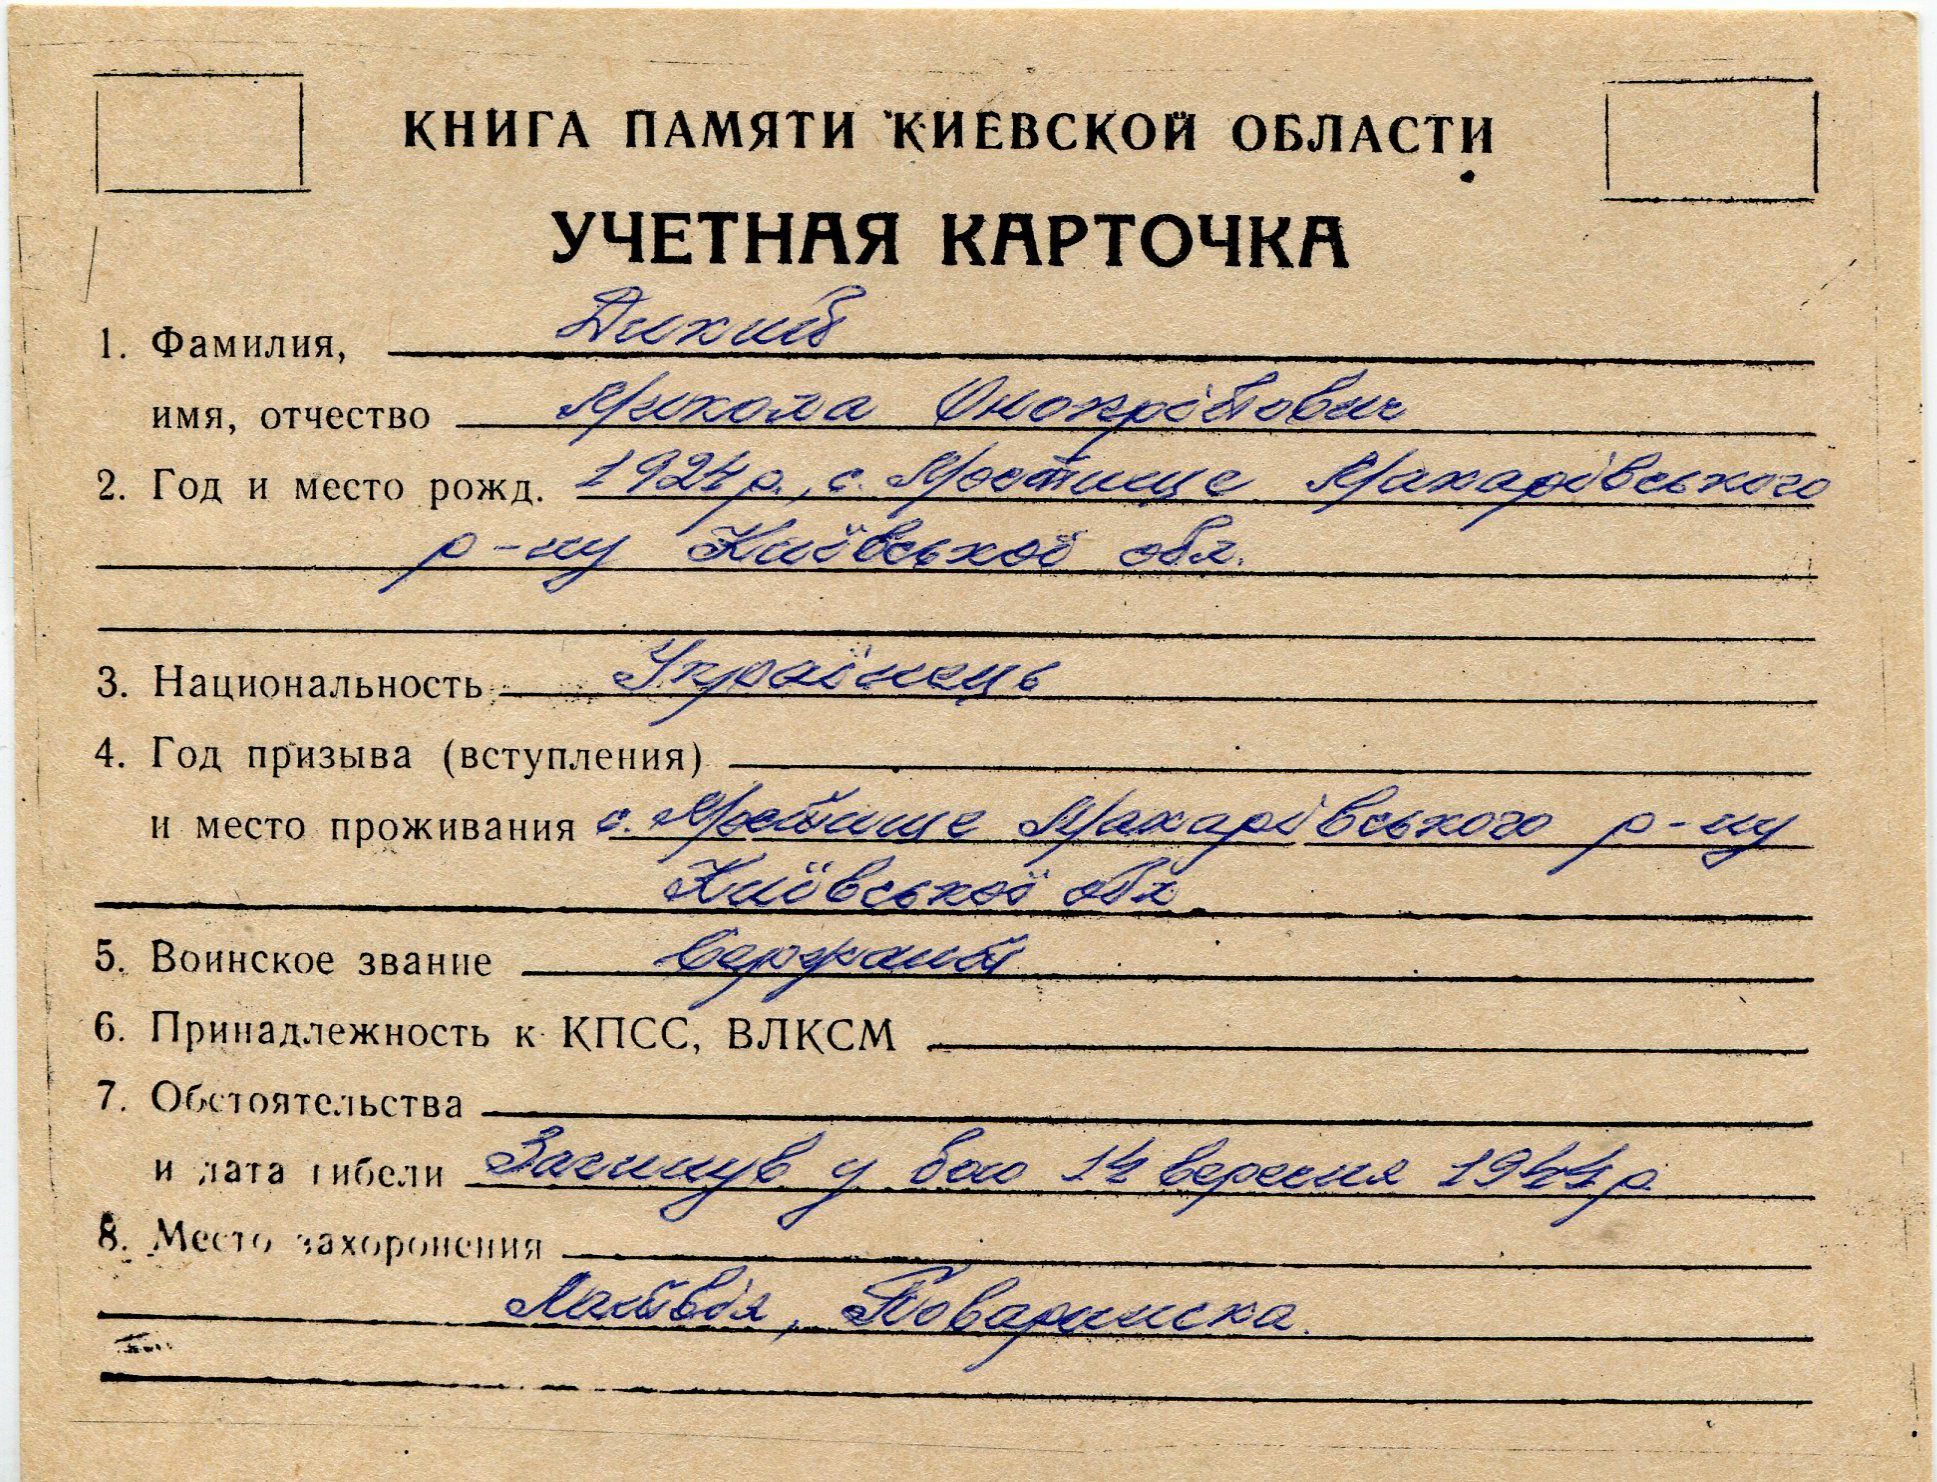 КНИГА ПАМЯТИ КИЕВСКОЙ ОБЛАСТИ
УЧЕТНАЯ КАРТОЧКА
1. Фамилия, Дикий
имя, отчество Микола Онопрійович
2. Год и место рожд. 1924 р., с. Мостище Макарівського
р-ну Київської обл.
3. Национальность Українець
4. Год призыва (вступления)
и место проживания с. Мостище Макарівського р-ну
Київської обл.
5. Воинское звание Сержант
6. Принадлежность к КПСС, ВЛКСМ
7. Обстоятельства
и дата гибели Загинув у бою 14 вересня 1944 р.
8. Место захоронения
Латвія,